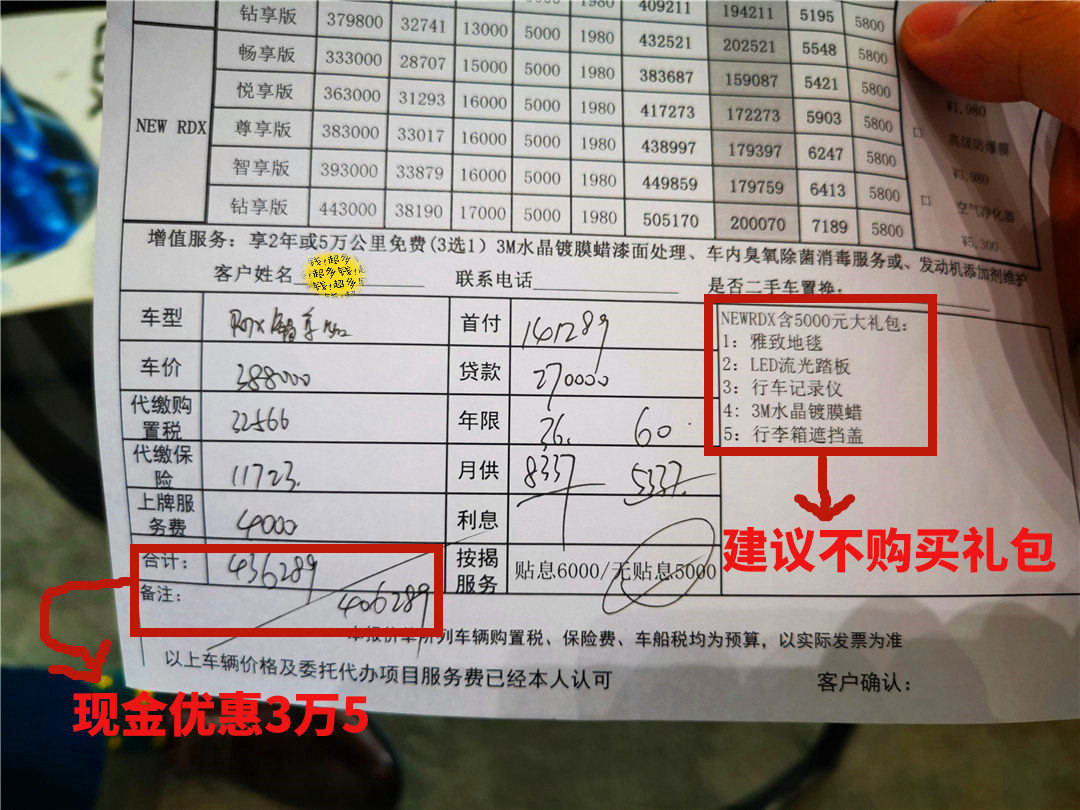 钻享版 379800 32741 13000 5000 1980 409211 194211 5195 5800
畅享版 333000 28707 15000 5000 1980 432521 202521 5548 5800
悦享版 363000 31293 16000 5000 1980 383687 159087 5421 5800
NEW RDX 尊享版 383000 33017 16000 5000 1980 417273 172273 5903 5800
智享版 393000 33879 16000 5000 1980 438997 179397 6247 5800
钻享版 443000 38190 17000 5000 1980 449859 179759 6413 5800
505170 200070 7189 5800
¥1,980
高级防爆膜
¥3,980
空气净化器
¥5,300
增值服务：享2年或5万公里免费(3选1) 3M水晶镀膜蜡漆面处理、车内臭氧除菌消毒服务或、发动机添加剂维护
客户姓名 联系电话 是否二手车置换：
车型 首付 141289
车价 388000 贷款 270000
代缴购置税 32566 年限 36. 60.
代缴保险 11723. 月供 8337 5337.
上牌服务费 4000 利息
合计： 436289 按揭服务 贴息6000/无贴息5000
备注： 406289
NEWRDX含5000元大礼包：
1：雅致地毯
2：LED流光踏板
3：行车记录仪
4：3M水晶镀膜蜡
5：行李箱遮挡盖
建议不购买礼包
本报价单所列车辆购置税、保险费、车船税均为预算，以实际发票为准
以上车辆价格及委托代办项目服务费已经本人认可
客户确认：
现金优惠3万5